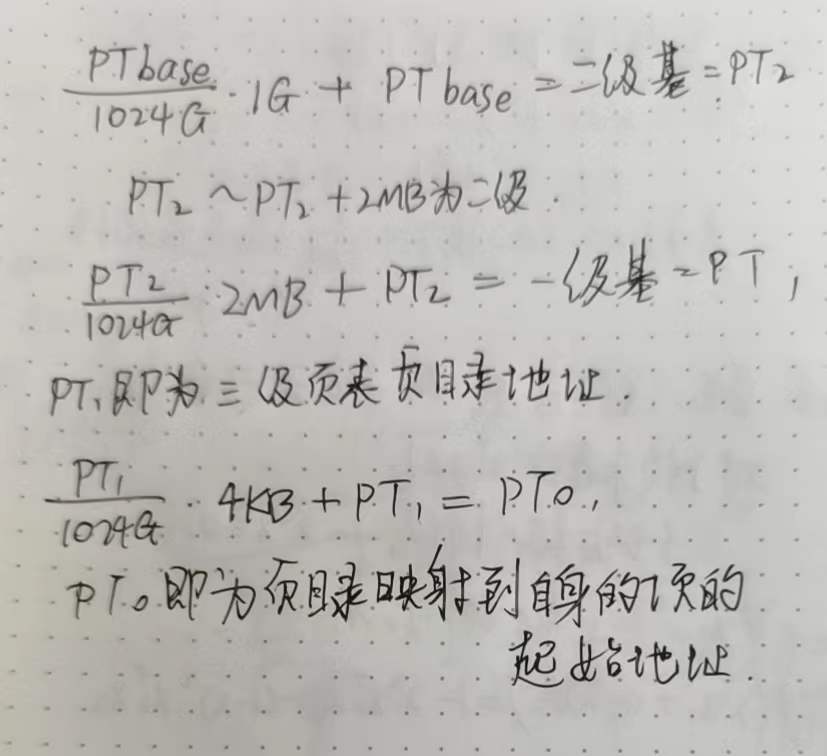 PTbase/1024G · 1G + PTbase = 二级基 = PT₂
PT₂ ~ PT₂ + 2MB为二级.
PT₂/1024G · 2MB + PT₂ = 一级基 = PT₁
PT₁即为三级页表页目录地址.
PT₁/1024G · 4KB + PT₁ = PT₀,
PT₀即为页目录映射到自身的项的
起始地址.